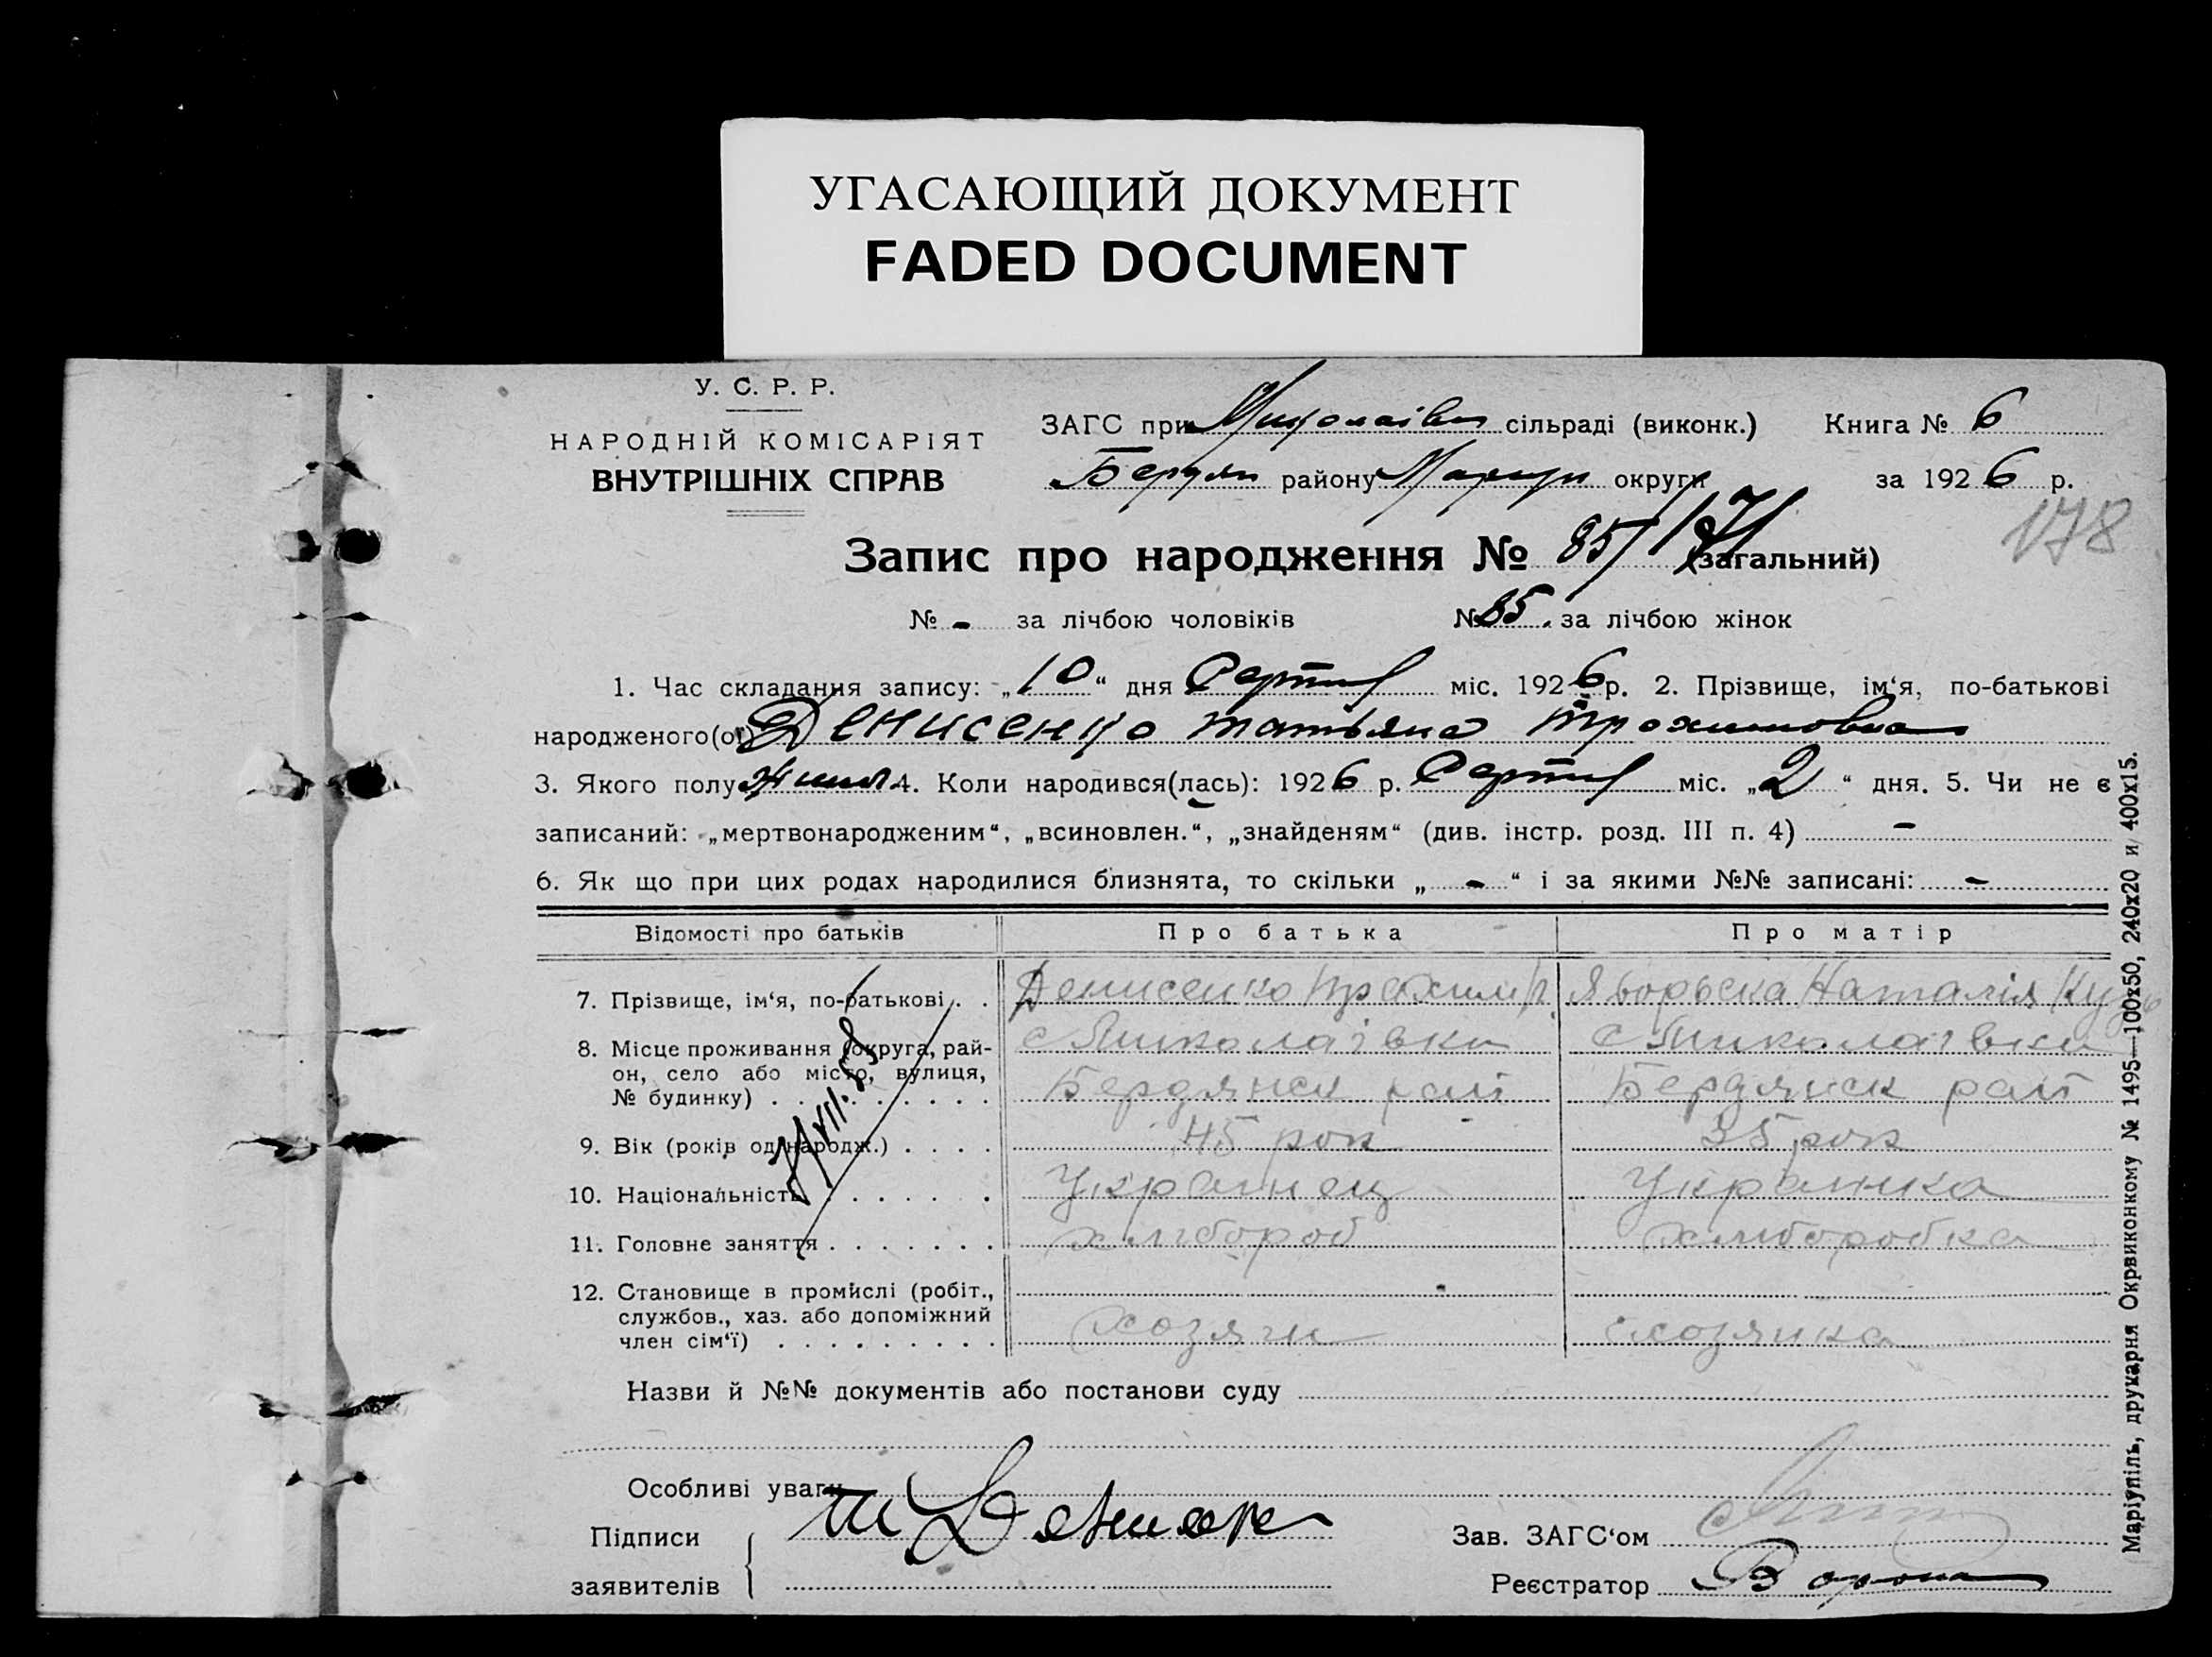 УГАСАЮЩИЙ ДОКУМЕНТ
FADED DOCUMENT
У. С. Р. Р.
НАРОДНІЙ КОМІСАРІЯТ
ВНУТРІШНІХ СПРАВ
ЗАГС при Миколаівск сільраді (виконк.) Книга № 6
Бердян району Марiуп округи за 1926 р.
178
Запис про народження № 85/171 (загальний)
№ - за лічбою чоловіків № 85. за лічбою жінок
1. Час складання запису: „10“ дня міс. 1926 р. 2. Прізвище, ім‘я, по-батькові
народженого(ої) Денисенко Татьяна Трохимовна
3. Якого полу 4. Коли народився(лась): 1926 р. міс. „2“ дня. 5. Чи не є
записаний: „мертвонародженим“, „всиновлен.“, „знайденям“ (див. інстр. розд. III п. 4) -
6. Як що при цих родах народилися близнята, то скільки „ - “ і за якими №№ записані: -
Відомості про батьків Про батька Про матір
7. Прізвище, ім‘я, по-батькові . . Денисенко Трохим Яворьска Наталія
8. Місце проживання (округа, рай- с Миколаівка с Миколаівка
он, село або місто, вулиця,
№ будинку) . . . . . . . . . Бердянск рай Бердянск рай
9. Вік (років од народж.) . . . . 45 рок 35 рок
10. Національність . . . . . . Украінец Украинка
11. Головне заняття . . . . . . . хлібороб хліборобка
12. Становище в промислі (робіт.,
службов., хаз. або допоміжний
член сім‘ї) . . . . . . . . . хозяін хозяика
Назви й №№ документів або постанови суду
Особливі уваги
Підписи
заявителів
Зав. ЗАГС‘ом
Реєстратор Ворона
Маріупіль, друкарня Окрвиконкому № 1495—100x50, 240x20 и 400x15.